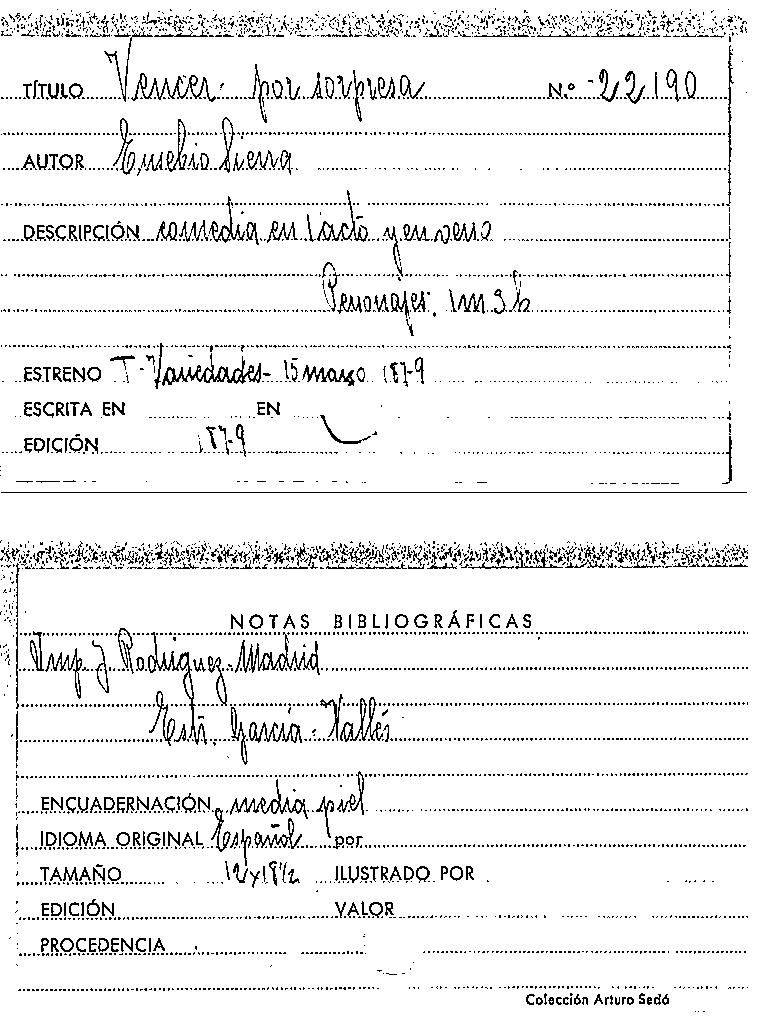 TÍTULO Vencer por sorpresa N.º 22190
AUTOR Eusebio Sierra
DESCRIPCIÓN comedia en 1 acto y en verso
Personajes. 1m 3h
ESTRENO T-Variedades- 15 marzo 1879
ESCRITA EN EN
EDICIÓN 1879
NOTAS BIBLIOGRÁFICAS
Imp. J Rodriguez-Madrid
Estr. Garcia-Vallés
ENCUADERNACIÓN media piel
IDIOMA ORIGINAL Español por
TAMAÑO 12 x 18 ½ ILUSTRADO POR
EDICIÓN VALOR
PROCEDENCIA
Colección Arturo Sedó